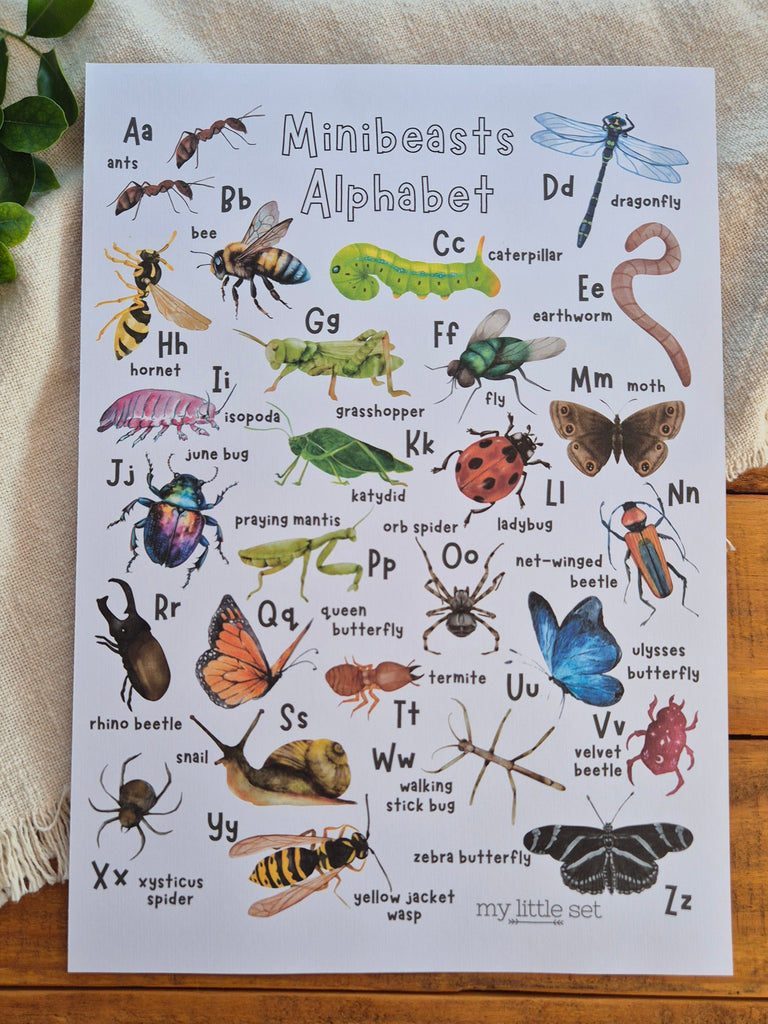 Minibeasts
Alphabet
Aa
ants
Bb
bee
Cc
caterpillar
Dd
dragonfly
Ee
earthworm
Hh
hornet
Gg
grasshopper
Ff
fly
Mm
moth
Ii
isopoda
Jj
june bug
Kk
katydid
Ll
ladybug
Nn
net-winged
beetle
praying mantis
Pp
orb spider
Oo
Rr
rhino beetle
Qq
queen
butterfly
termite
Tt
Uu
ulysses
butterfly
Ss
snail
Ww
walking
stick bug
Vv
velvet
beetle
Xx
xysticus
spider
Yy
yellow jacket
wasp
zebra butterfly
Zz
my little set